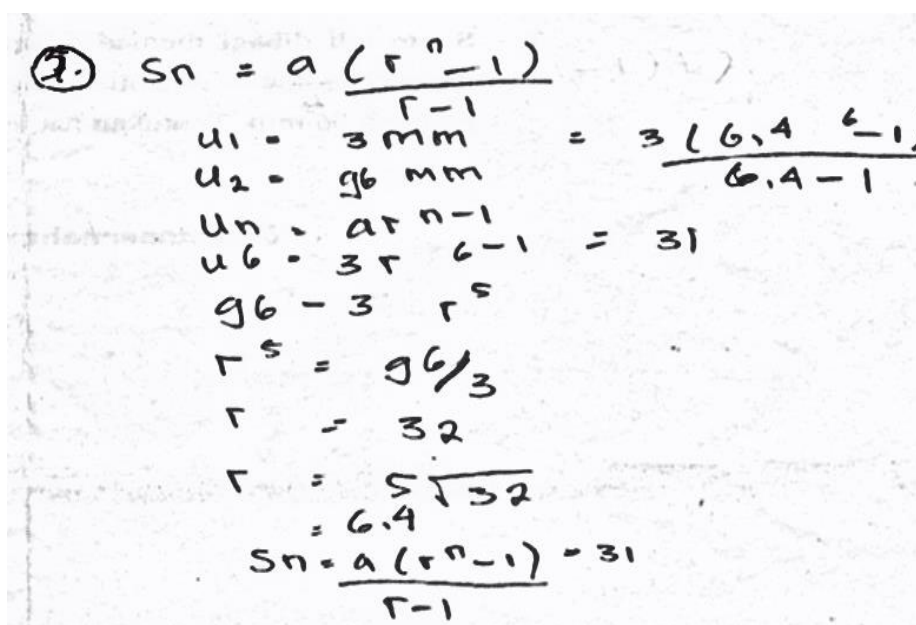 2. Sn = a (r^n - 1) / r - 1
u1 = 3 mm = 3 (6,4^6 - 1) / 6,4 - 1
u2 = 96 mm
un = ar^n-1
u6 = 3r^6-1 = 31
96 - 3 r^5
r^5 = 96/3
r = 32
r = 5√32
= 6.4
Sn = a (r^n - 1) / r - 1 = 31